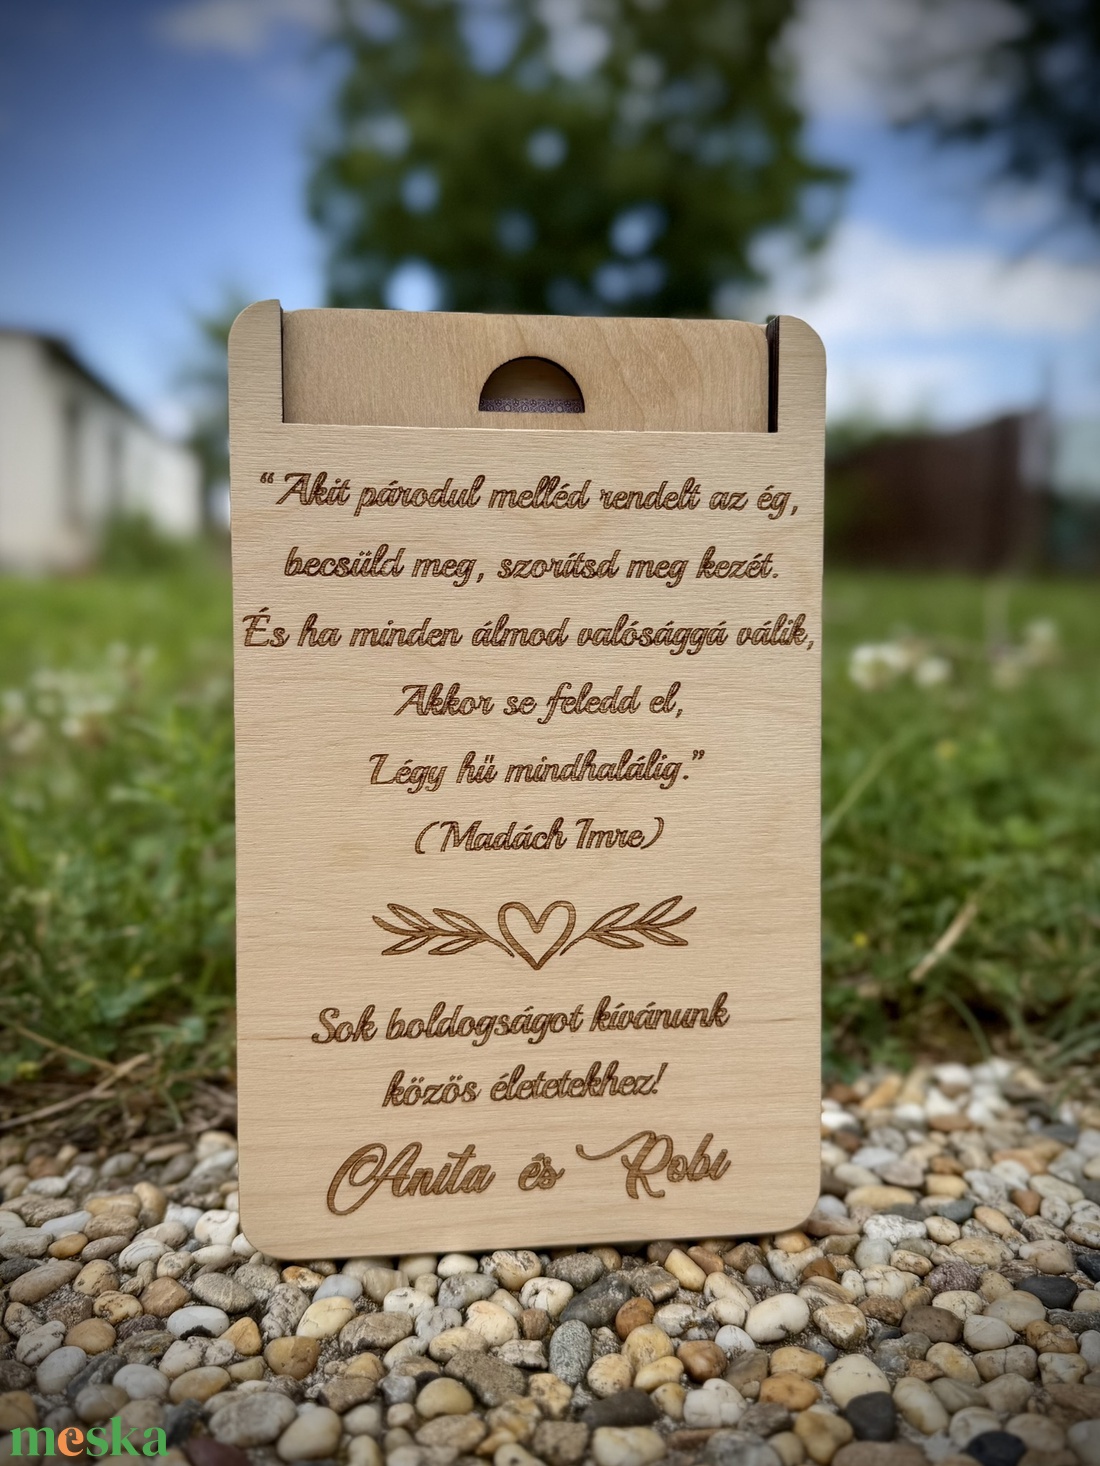 “Akit párodul melléd rendelt az ég,
becsüld meg, szorítsd meg kezét.
És ha minden álmod valósággá válik,
Akkor se feledd el,
Légy hű mindhalálig.”
(Madách Imre)
Sok boldogságot kívánunk
közös életetekhez!
Anita és Robi
meska